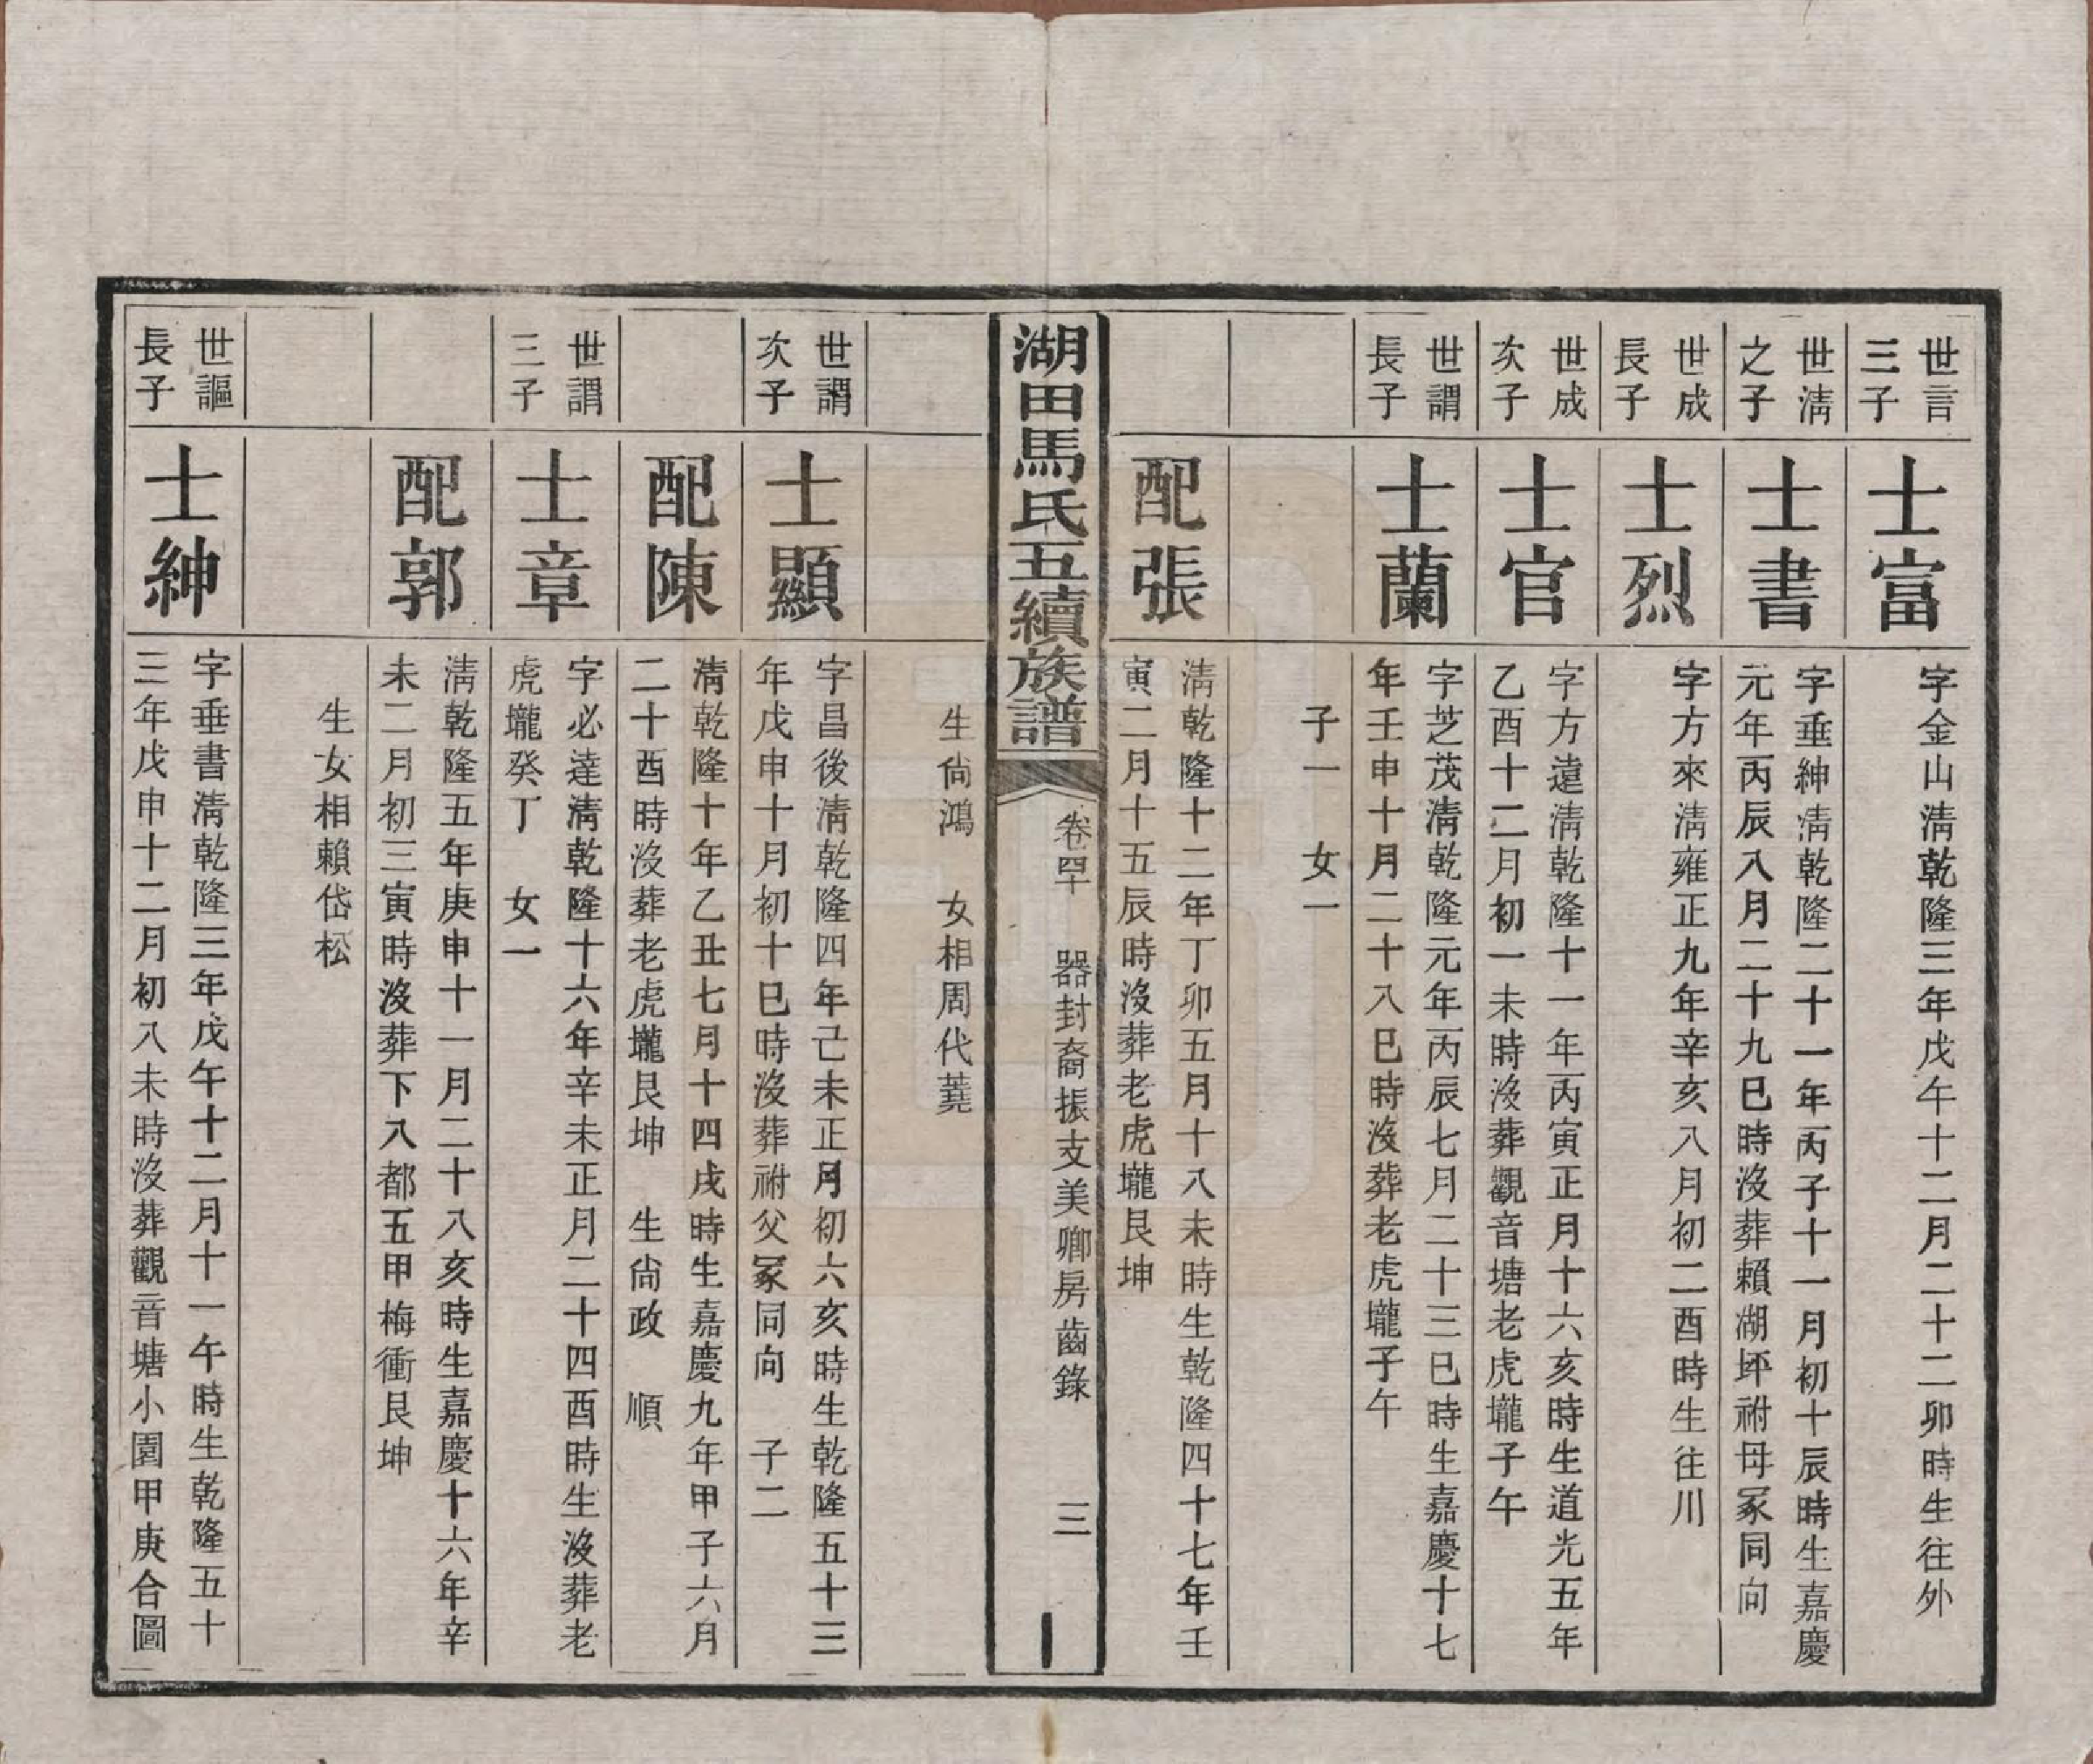 世言
三子
士富
字金山淸乾隆三年戊午十二月二十二卯時生往外
世淸
之子
士書
字垂紳淸乾隆二十一年丙子十一月初十辰時生嘉慶
元年丙辰八月二十九巳時沒葬賴湖坪祔母冢同向
世成
長子
士烈
字方來淸雍正九年辛亥八月初二酉時生往川
世成
次子
士官
字方遠淸乾隆十一年丙寅正月十六亥時生道光五年
乙酉十二月初一未時沒葬觀音塘老虎壠子午
世謂
長子
士蘭
字芝茂淸乾隆元年丙辰七月二十三巳時生嘉慶十七
年壬申十月二十八巳時沒葬老虎壠子午
子一　女一
配張
淸乾隆十二年丁卯五月十八未時生乾隆四十七年壬
寅二月十五辰時沒葬老虎壠艮坤
湖田馬氏五續族譜
卷四卒　器封裔振支美卿房齒錄　三
生尙鴻　女相周代蕘
世謂
次子
士顯
字昌後淸乾隆四年己未正月初六亥時生乾隆五十三
年戊申十月初十巳時沒葬祔父冢同向　子二
配陳
淸乾隆十年乙丑七月十四戌時生嘉慶九年甲子六月
二十酉時沒葬老虎壠艮坤　生尙政　順
世謂
三子
士章
字必達淸乾隆十六年辛未正月二十四酉時生沒葬老
虎壠癸丁　女一
配郭
淸乾隆五年庚申十一月二十八亥時生嘉慶十六年辛
未二月初三寅時沒葬下八都五甲梅衝艮坤
生女相賴岱松
世謳
長子
士紳
字垂書淸乾隆三年戊午十二月十一午時生乾隆五十
三年戊申十二月初八未時沒葬觀音塘小園甲庚合圖